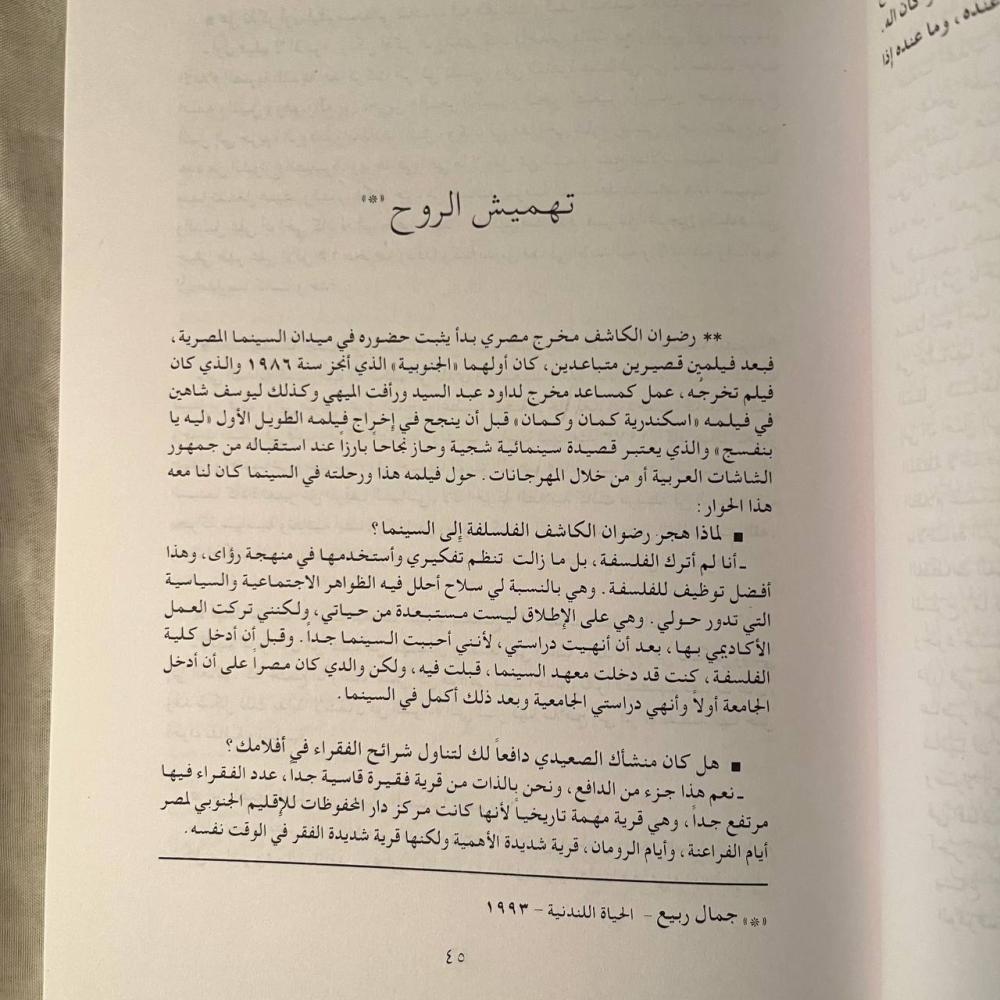 كان الله
عنده، وما عنده إذا
تهميش الروح «*»
** رضوان الكاشف مخرج مصري بدأ يثبت حضوره في ميدان السينما المصرية،
فبعد فيلمين قصيرين متباعدين، كان أولهما «الجنوبية» الذي أنجز سنة ١٩٨٦ والذي كان
فيلم تخرجه، عمل كمساعد مخرج لداود عبد السيد ورأفت الميهي وكذلك ليوسف شاهين
في فيلمه «اسكندرية كمان وكمان» قبل أن ينجح في إخراج فيلمه الطويل الأول «ليه يا
بنفسج» والذي يعتبر قصيدة سينمائية شجية وحاز نجاحاً بارزاً عند استقباله من جمهور
الشاشات العربية أو من خلال المهرجانات. حول فيلمه هذا ورحلته في السينما كان لنا معه
هذا الحوار:
■ لماذا هجر رضوان الكاشف الفلسلفة إلى السينما؟
ـ أنا لم أترك الفلسفة، بل ما زالت تنظم تفكيري وأستخدمها في منهجة رؤاي، وهذا
أفضل توظيف للفلسفة. وهي بالنسبة لي سلاح أحلل فيه الظواهر الاجتماعية والسياسية
التي تدور حولي. وهي على الإطلاق ليست مستبعدة من حياتي، ولكنني تركت العمل
الأكاديمي بها، بعد أن أنهيت دراستي، لأنني أحببت السينما جداً. وقبل أن أدخل كلية
الفلسفة، كنت قد دخلت معهد السينما، قبلت فيه، ولكن والدي كان مصراً على أن أدخل
الجامعة أولاً وأنهي دراستي الجامعية وبعد ذلك أكمل في السينما.
■ هل كان منشأك الصعيدي دافعاً لك لتناول شرائح الفقراء في أفلامك؟
ـ نعم هذا جزء من الدافع، ونحن بالذات من قرية فقيرة قاسية جداً، عدد الفقراء فيها
مرتفع جداً، وهي قرية مهمة تاريخياً لأنها كانت مركز دار المحفوظات للإقليم الجنوبي لمصر
أيام الفراعنة، وأيام الرومان، قرية شديدة الأهمية ولكنها قرية شديدة الفقر في الوقت نفسه.
«*» جمال ربيع - الحياة اللندنية - ١٩٩٣
٤٥